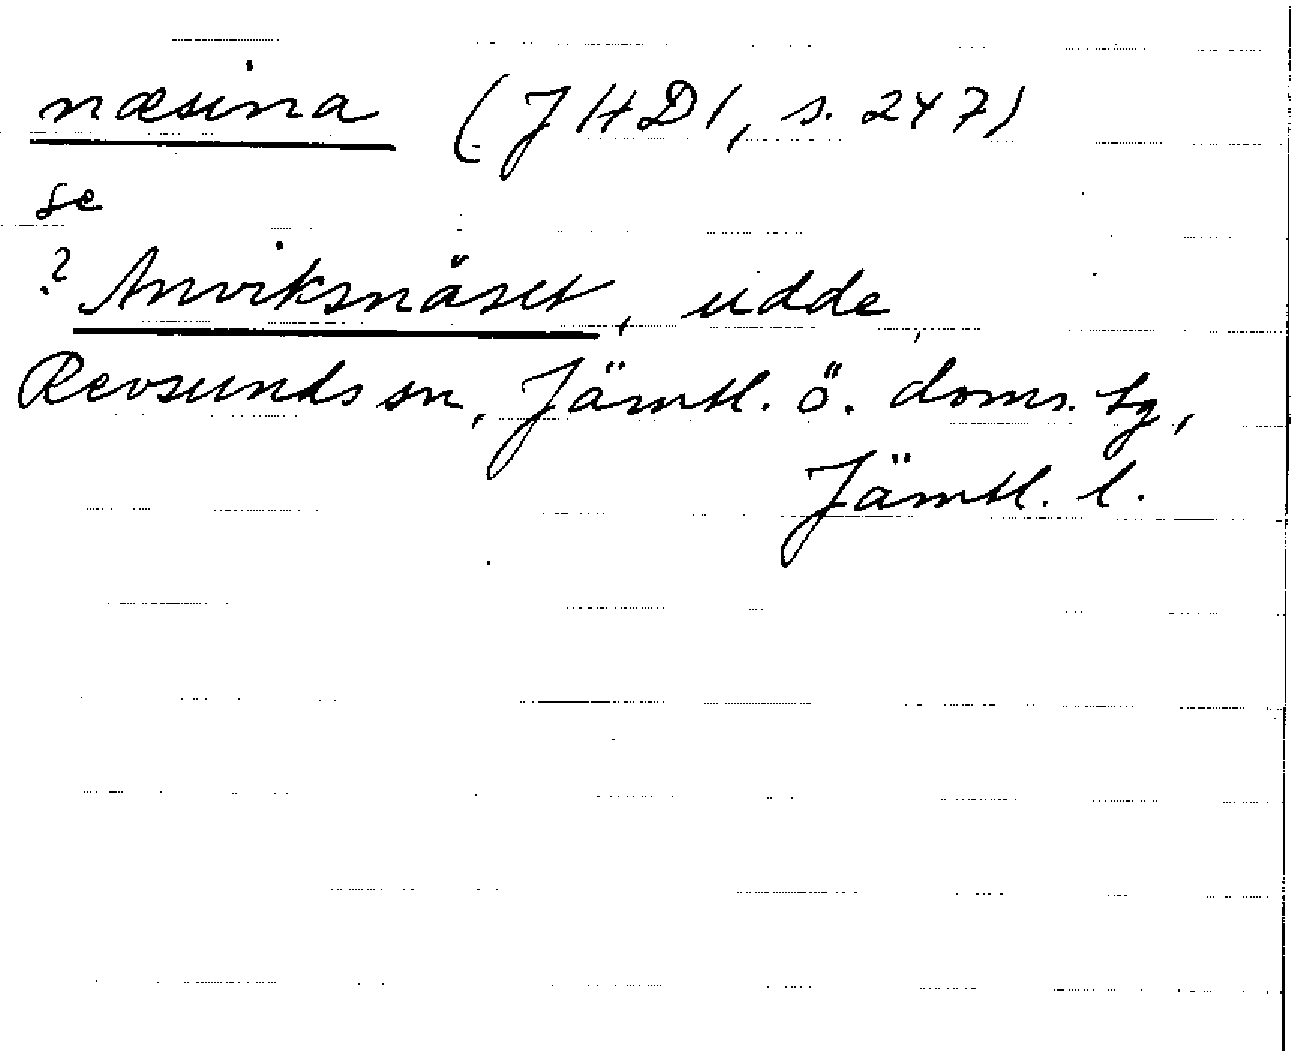 næsina (JHD1, s. 247)
se
? Anviksnäset, udde,
Revsunds sn, Jämtl. ö. doms. tg,
Jämtl. l.